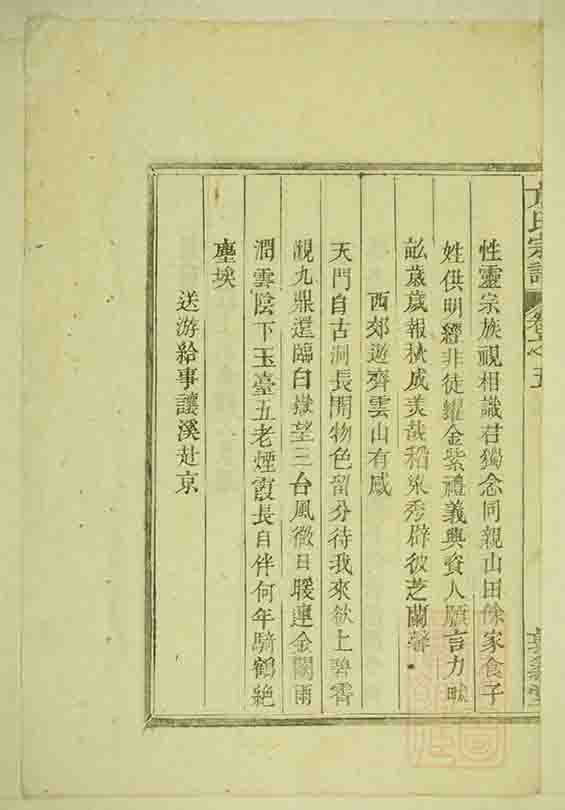 氏宗譜 卷之五
性靈宗族視相識君獨念同親山田餘家食子
姓供明經非徒耀金紫禮義興資人願言力畎
畝歲歲報秋成美哉稻粱秀辟彼芝蘭馨
西郊遊齊雲山有感
天門自古洞長開物色留分待我來欲上碧霄
覘九鼎還臨白嶽望三台風微日暖連金闕雨
潤雲陰下玉臺五老煙霞長自伴何年騎鶴絶
塵埃
送游給事讓溪赴京